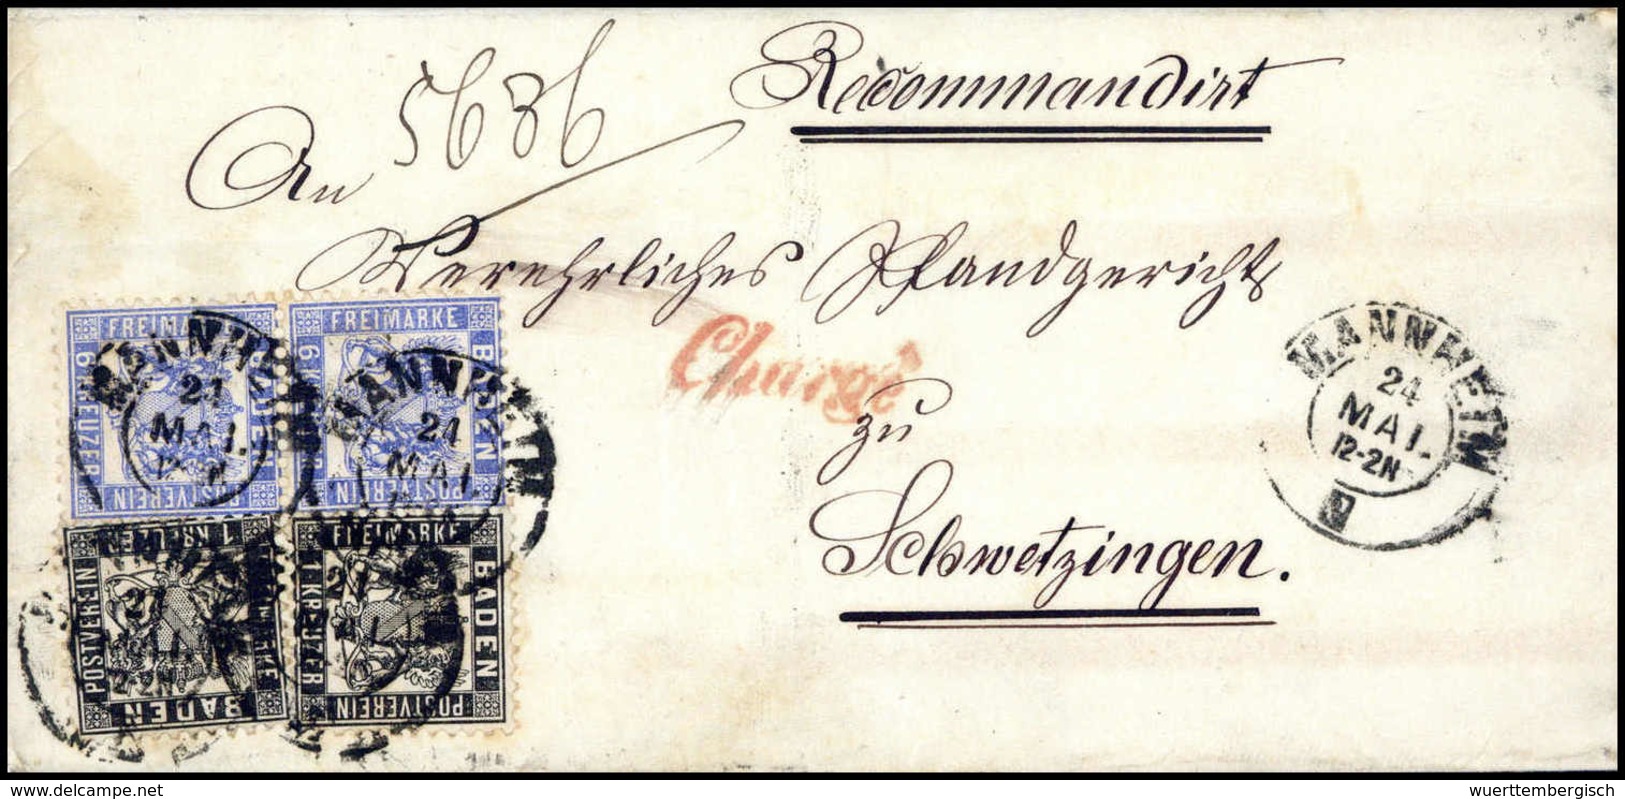 Recommandirt
5636
An
Verehrliches Pfandgericht
Chargé
zu
Schwetzingen.
MANNHEIM
24
MAI.
12-2N
FREIMARKE
BADEN
POSTVEREIN
6 KREUZER
MANNHEIM
24
MAI.
FREIMARKE
BADEN
POSTVEREIN
MANNHEIM
24
MAI.
1 KREUZER
POSTVEREIN
FREIMARKE
BADEN
FREIMARKE
BADEN
POSTVEREIN
1 KREUZER
www.delcampe.net
wuerttembergisch